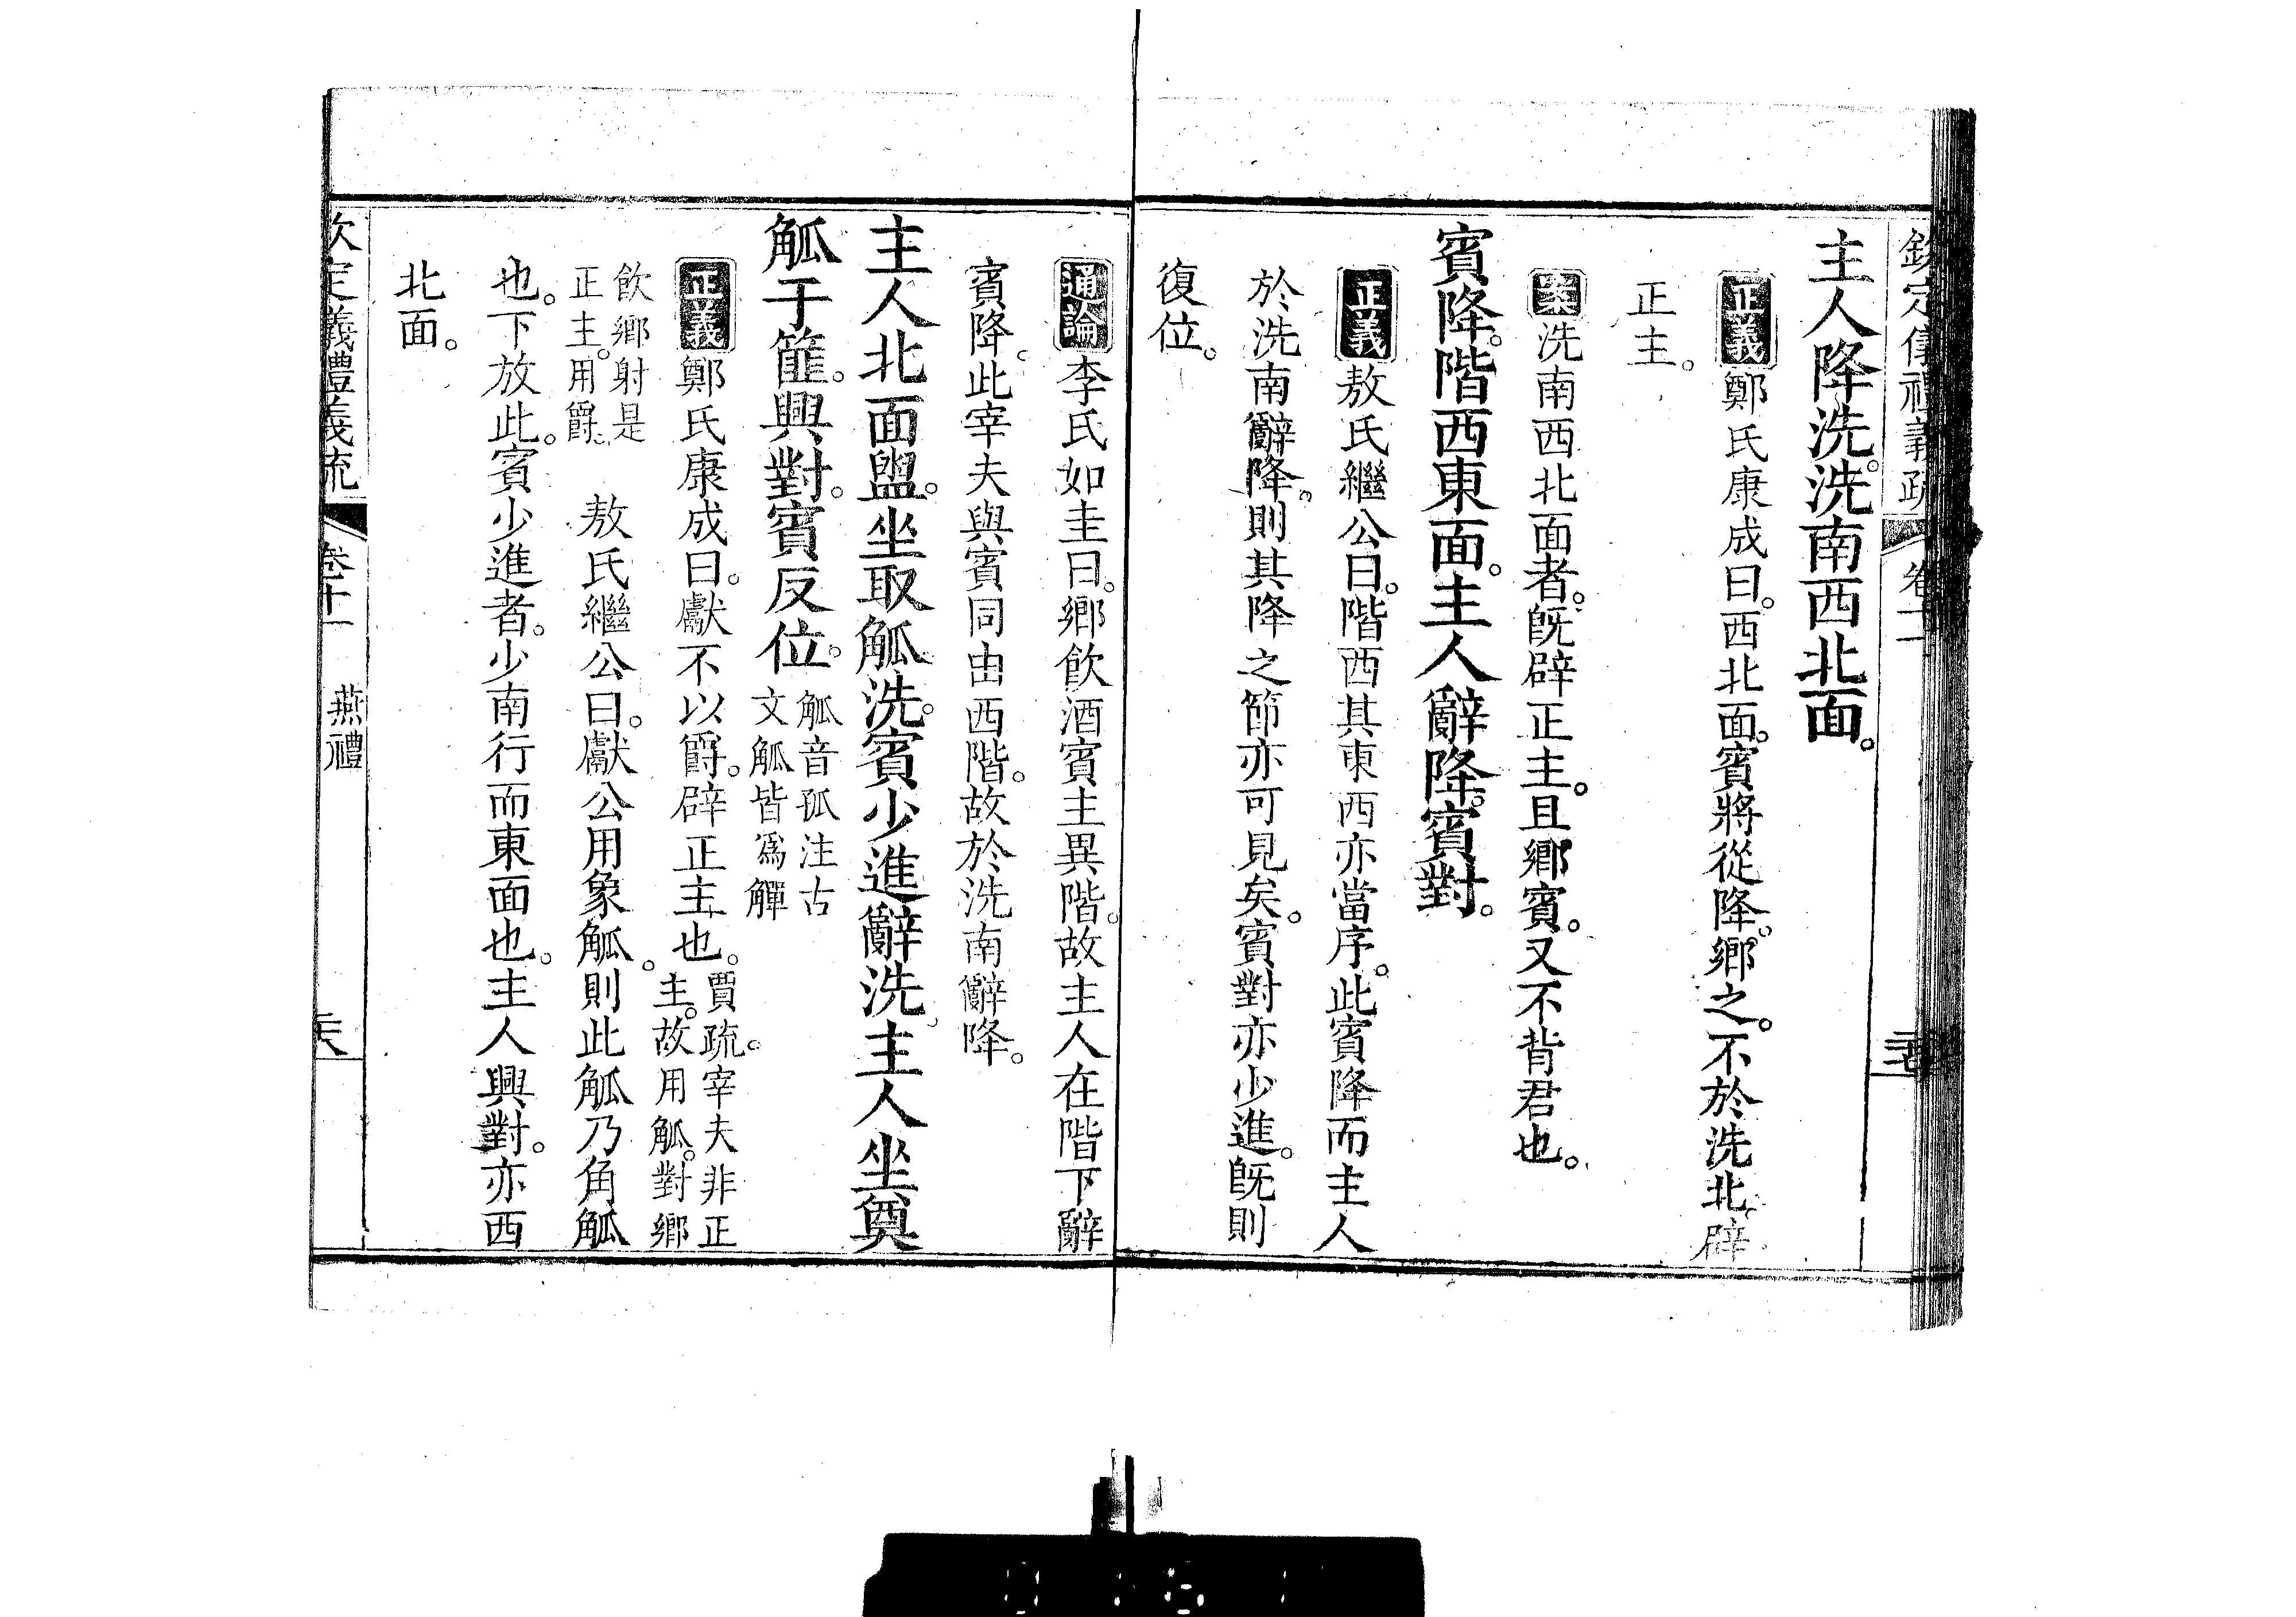 欽定儀禮義疏 卷十一
主人降洗。洗南西北面。
正義鄭氏康成曰。西北面。賓將從降。鄉之。不於洗北。辟
正主。
案洗南西北面者。旣辟正主。且鄉賓。又不背君也。
賓降。階西東面。主人辭降。賓對。
正義敖氏繼公曰。階西其東西亦當序。此賓降而主人
於洗南辭降。則其降之節亦可見矣。賓對亦少進。旣則
復位。
通論李氏如圭曰。鄉飲酒賓主異階。故主人在階下辭
賓降。此宰夫與賓同由西階。故於洗南辭降。
主人北面盥。坐取觚洗。賓少進辭洗。主人坐奠
觚于篚。興對。賓反位。觚音孤注古
文觚皆爲觶
正義鄭氏康成曰。獻不以爵。辟正主也。賈疏。宰夫非正
主。故用觚。對鄉
飲鄉射是
正主。用爵。 敖氏繼公曰。獻公用象觚。則此觚乃角觚
也。下放此。賓少進者。少南行而東面也。主人興對。亦西
北面。
欽定義禮義疏 卷十一 燕禮